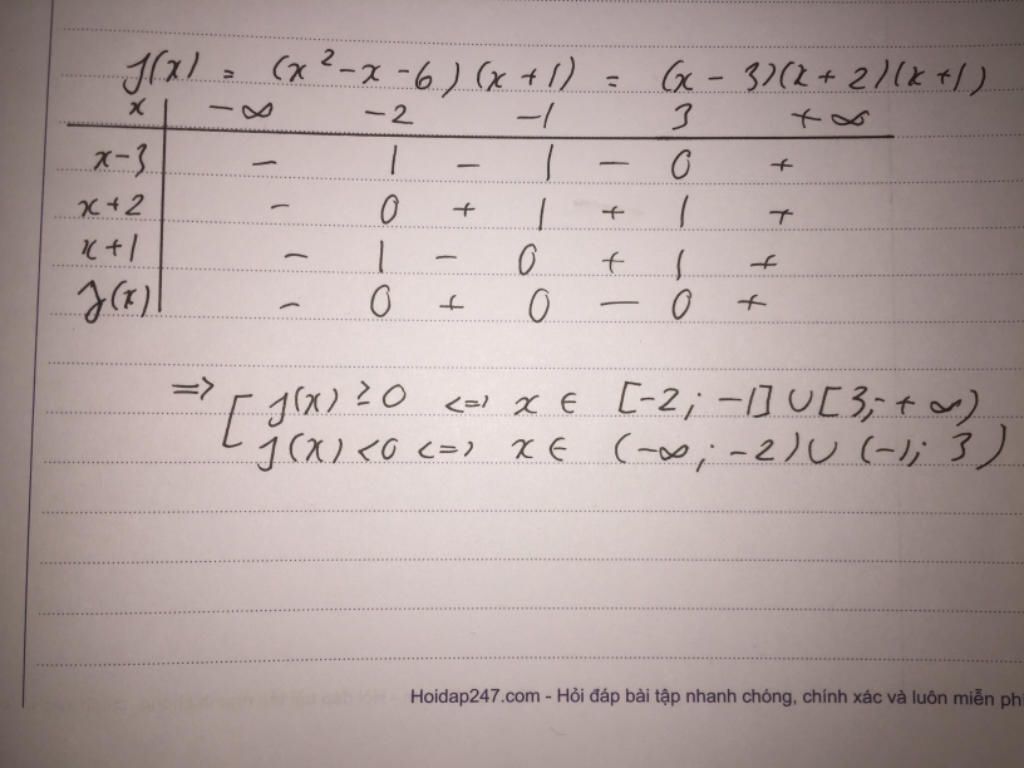 f(x) = (x² - x - 6)(x + 1) = (x - 3)(x + 2)(x + 1)
x | -∞ -2 -1 3 +∞
x-3 | - | - | - 0 +
x+2 | - 0 + | + | +
x+1 | - | - 0 + | +
f(x) | - 0 + 0 - 0 +
=> [ f(x) ≥ 0 <=> x ∈ [-2; -1] ∪ [3; +∞)
f(x) < 0 <=> x ∈ (-∞; -2) ∪ (-1; 3)
Hoidap247.com - Hỏi đáp bài tập nhanh chóng, chính xác và luôn miễn phí